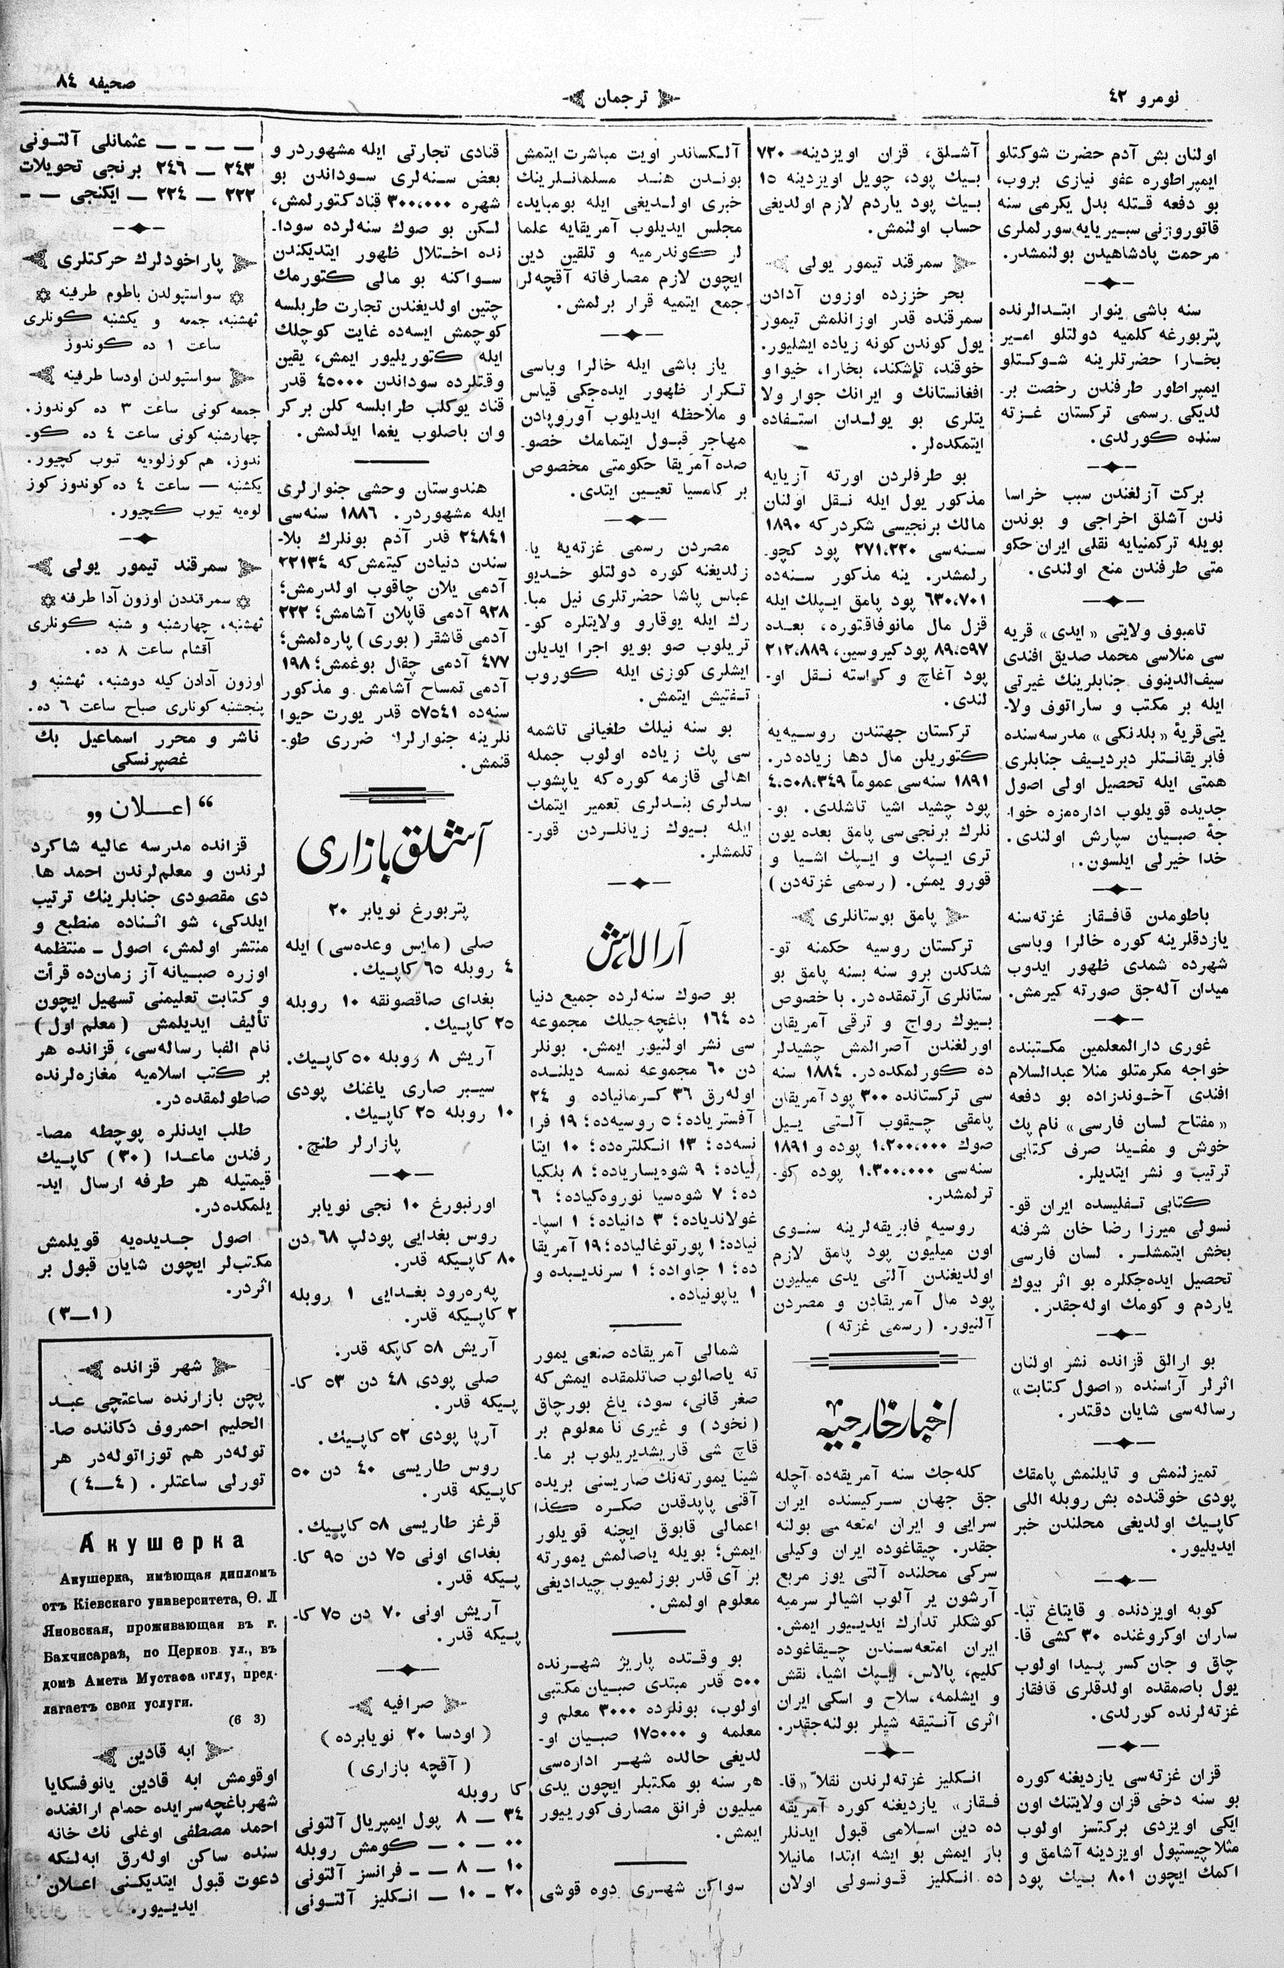 نومرو ٤٢
ترجمان
صحیفه ٨٤
اولنان بش آدم حضرت شوكتلو
ایمپراطوره عفو نیازی بروب،
بو دفعه قتله بدل یكرمی سنه
قاتوروزنی سبیریایه سورلملری
مرحمت پادشاهیدن بولنمشدر.
سنه باشی ینوار ابتدالرنده
پتربورغه كلمیه دولتلو امیر
بخارا حضرتلرینه شوكتلو
ایمپراطور طرفندن رخصت بر-
لدیكی رسمی تركستان غزته
سنده كورلدی.
بركت آزلغندن سبب خراسا
ندن آشلق اخراجی و بوندن
بویله تركمنیایه نقلی ایران حكو
متی طرفندن منع اولندی.
تامبوف ولایتی «ایدی» قریه
سی منلاسی محمد صدیق افندی
سیف‌الدینوف جنابلرینك غیرتی
ایله بر مكتب و ساراتوف ولا-
یتی قریهٔ «بلدنكی» مدرسه‌سنده
فابریقانتلر دبردییف جنابلری
همتی ایله تحصیل اولی اصول
جدیده قویلوب اداره‌مزه خوا-
جهٔ صبیان سپارش اولندی.
خدا خیرلی ایلسون.
باطومدن قافقاز غزته‌سنه
یازدقلرینه كوره خالرا وباسی
شهرده شمدی ظهور ایدوب
میدان آله‌جق صورته كیرمش.
غوری دارالمعلمین مكتبنده
خواجه مكرمتلو منلا عبدالسلام
افندی آخوندزاده بو دفعه
«مفتاح لسان فارسی» نام پك
خوش و مفید صرف كتابی
ترتیب و نشر ایتدیلر.
كتابی تفلیسده ایران قو-
نسولی میرزا رضا خان شرفنه
بخش ایتمشلر. لسان فارسی
تحصیل ایده‌جكلره بو اثر بیوك
یاردم و كومك اوله‌جقدر.
بو ارالق قزانده نشر اولنان
اثرلر آراسنده «اصول كتابت»
رساله‌سی شایان دقتدر.
تمیزلنمش و تایلنمش پامقك
پودی خوقندده بش روبله اللی
كاپیك اولدیغی محلندن خبر
ایدیلیور.
كوبه اویزدنده و قایتاغ تبا-
ساران اوكروغنده ٣٠ كشی قا-
چاق و جان كسر پیدا اولوب
یول باصمقده اولدقلری قافقاز
غزته‌لرنده كورلدی.
قزان غزته‌سی یازدیغنه كوره
بو سنه دخی قزان ولایتنك اون
ایكی اویزدی بركتسز اولوب
مثلا چیستپول اویزدینه آشامق و
اكمك ایچون ٨٠١ بیك پود
آشلق، قزان اویزدینه ٧٢٠
بیك پود، چویل اویزدینه ١٥
بیك پود یاردم لازم اولدیغی
حساب اولنمش.
سمرقند تیمور یولی
بحر خززده اوزون آدادن
سمرقنده قدر اوزانلمش تیمور
یول كوندن كونه زیاده ایشلیور.
خوقند، تاشكند، بخارا، خیوا و
افغانستانك و ایرانك جوار ولا
یتلری بو یولدان استفاده
ایتمكده‌لر.
بو طرفلردن اورته آزیایه
مذكور یول ایله نقل اولنان
مالك برنجیسی شكردركه ١٨٩٠
سنه‌سی ٢٧١،٢٢٠ پود كچو-
رلمشدر. ینه مذكور سنه‌ده
٦٣٠،٧٠١ پود پامق ایپلك ایله
قزل مال مانوفاقتوره، بعده
٨٩،٥٩٧ پود كیروسین، ٢١٢،٨٨٩
پود آغاچ و كراسته نقل او-
لندی.
تركستان جهتندن روسیه‌یه
كتوریلن مال دها زیاده‌در.
١٨٩١ سنه‌سی عموماً ٤،٥٠٨،٣٤٩
پود چشید اشیا تاشلدی. بو-
نلرك برنجی‌سی پامق بعده یون
تری ایپك و ایپك اشیا و
قورو یمش. (رسمی غزته‌دن)
پامق بوستانلری
تركستان روسیه حكمنه تو-
شدكدن برو سنه بسنه پامق بو
ستانلری آرتمقده‌در. با خصوص
بیوك رواج و ترقی آمریقان
اورلغندن آصرالمش چشیدلر
ده كورلمكده‌در. ١٨٨٤ سنه
سی تركستانده ٣٠٠ پود آمریقان
پامقی چیقوب آلتی ییل
صوك ١،٢٠٠،٠٠٠ پوده و ١٨٩١
سنه‌سی ١،٣٠٠،٠٠٠ پوده كو-
ترلمشدر.
روسیه فابریقه‌لرینه سنوی
اون میلیون پود پامق لازم
اولدیغندن آلتی یدی میلیون
پود مال آمریقادن و مصردن
آلنیور. (رسمی غزته)
اخبار خارجیه
كله‌جك سنه آمریقه‌ده آچله
جق جهان سركیسنده ایران
سرایی و ایران امتعه‌سی بولنه
جقدر. چیقاغوده ایران وكیلی
سركی محلنده آلتی یوز مربع
آرشون یر آلوب اشیالر سرمیه
كوشكلر تدارك ایدییور ایمش.
ایران امتعه‌سندن چیقاغوده
كلیم، پالاس، ایپك اشیا، نقش
و ایشلمه، سلاح و اسكی ایران
اثری آنتیقه شیلر بولنه‌جقدر.
انكلیز غزته‌لرندن نقلاً «قا-
فقاز» یازدیغنه كوره آمریقه
ده دین اسلامی قبول ایدنلر
بار ایمش بو ایشه ابتدا مانیلا
ده انكلیز قونسولی اولان
آلكساندر اویت مباشرت ایتمش
بوندن هند مسلمانلرینك
خبری اولدیغی ایله بومبایده
مجلس ایدیلوب آمریقایه علما
لر كوندرمیه و تلقین دین
ایچون لازم مصارفاته آقچه‌لر
جمع ایتمیه قرار برلمش.
یاز باشی ایله خالرا وباسی
تكرار ظهور ایده‌جكی قیاس
و ملاحظه ایدیلوب آوروپادن
مهاجر قبول ایتمامك خصو-
صده آمریقا حكومتی مخصوص
بر كامسیا تعیین ایتدی.
مصردن رسمی غزته‌یه یا-
زلدیغنه كوره دولتلو خدیو
عباس پاشا حضرتلری نیل مبا-
رك ایله یوقارو ولایتلره كو-
تریلوب صو بویو اجرا ایدیلن
ایشلری كوزی ایله كوروب
تفتیش ایتمش.
بو سنه نیلك طغیانی تاشمه
سی پك زیاده اولوب جمله
اهالی قازمه كوره‌كه یاپشوب
سدلری بندلری تعمیر ایتمك
ایله بیوك زیانلردن قور-
تلمشلر.
آرالاش
بو صوك سنه‌لرده جمیع دنیا
ده ١٦٤ باغچه‌جیلك مجموعه
سی نشر اولنیور ایمش. بونلر
دن ٦٠ مجموعه نمسه دیلنده
اوله‌رق ٣٦ كرمانیاده و ٢٤
آفستریاده؛ ٥ روسیه‌ده؛ ١٩ فرا
نسه‌ده؛ ١٣ انكلتره‌ده؛ ١٠ ایتا
لیاده؛ ٩ شوه‌یساریاده؛ ٨ بلكیا
ده؛ ٧ شوه‌سیا نوروه‌كیاده؛ ٦
غولاندیاده؛ ٣ دانیاده؛ ١ اسپا-
نیاده؛ ١ پورتوغالیاده؛ ١٩ آمریقا
ده؛ ١ جاواده؛ ١ سرندیبده و
١ یاپونیاده.
شمالی آمریقاده صنعی یمور
ته یاصالوب صاتلمقده ایمش‌كه
صغر قانی، سود، یاغ بورچاق
(نخود) و غیری نا معلوم بر
قاچ شی قاریشدیریلوب بر ما-
شینا یمورته‌نك صاریسنی بریده
آقنی یاپدقدن صكره كذا
اعمالی قابوق ایچنه قویلور
ایمش؛ بویله یاصالمش یمورته
بر آی قدر بوزلمیوب چیدادیغی
معلوم اولمش.
بو وقتده پاریژ شهرنده
٥٠٠ قدر مبتدی صبیان مكتبی
اولوب، بونلرده ٣٠٠٠ معلم و
معلمه و ١٧٥٠٠٠ صبیان او-
لدیغی حالده شهر اداره‌سی
هر سنه بو مكتبلر ایچون یدی
میلیون فرانق مصارف كورییور
ایمش.
سواكن شهری دوه قوشی
قنادی تجارتی ایله مشهوردر و
بعض سنه‌لری سوداندن بو
شهره ٣٠٠،٠٠٠ قناد كتورلمش،
لكن بو صوك سنه‌لرده سودا-
نده اختلال ظهور ایتدیكندن
سواكنه بو مالی كتورمك
چتین اولدیغندن تجارت طربلسه
كوچمش ایسه‌ده غایت كوچلك
ایله كتوریلیور ایمش، یقین
وقتلرده سوداندن ٤٥٠٠٠ قدر
قناد یوكلب طرابلسه كلن بر كر
وان باصلوب یغما ایدلمش.
هندوستان وحشی جنوارلری
ایله مشهوردر. ١٨٨٦ سنه‌سی
٢٤٨٤١ قدر آدم بونلرك بلا-
سندن دنیادن كیتمش‌كه ٢٢١٣٤
آدمی یلان چاقوب اولدرمش؛
٩٢٨ آدمی قاپلان آشامش؛ ٢٢٢
آدمی قاشقر (بوری) پاره‌لمش؛
٤٧٧ آدمی چقال بوغمش؛ ١٩٨
آدمی تمساح آشامش و مذكور
سنه‌ده ٥٧٥٤١ قدر یورت حیوا
نلرینه جنوارلرك ضرری طو-
قنمش.
آشلق بازاری
پتربورغ نویابر ٢٠
صلی (مایس وعده‌سی) ایله
٤ روبله ٦٥ كاپیك.
بغدای صاقصونقه ١٠ روبله
٢٥ كاپیك.
آریش ٨ روبله ٥٠ كاپیك.
سیبر صاری یاغنك پودی
١٠ روبله ٢٥ كاپیك.
پازارلر طنچ.
اورنبورغ ١٠ نجی نویابر
روس بغدایی پودلپ ٦٨ دن
٨٠ كاپیكه قدر.
په‌ره‌رود بغدایی ١ روبله
٢ كاپیكه قدر.
آریش ٥٨ كاپكه قدر.
صلی پودی ٤٨ دن ٥٣ كا-
پیكه قدر.
آرپا پودی ٥٢ كاپیك.
روس طاریسی ٤٠ دن ٥٠
كاپیكه قدر.
قرغز طاریسی ٥٨ كاپیك.
بغدای اونی ٧٥ دن ٩٥ كا-
پیكه قدر.
آریش اونی ٧٠ دن ٧٥ كا-
پیكه قدر.
صرافیه
(اودسا ٢٠ نویابرده)
(آقچه بازاری)
كا روبله
٣٤ — ٨ پول ایمپریال آلتونی
٠٠ — ٠ — كومش روبله
١٠ — ٨ — - فرانسز آلتونی
٢٠ - ١٠ — انكلیز آلتونی
— - - — عثمانلی آلتونی
٢٤٣ — ٢٤٦ برنجی تحویلات
٢٢٢ — ٢٢٤ — ایكنجی — -
پاراخودلرك حركتلری
سواستپولدن باطوم طرفینه
ثهشنبه، جمعه و یكشنبه كونلری
ساعت ١ ده كوندوز
سواستپولدن اودسا طرفینه
جمعه كونی ساعت ٣ ده كوندوز.
چهارشنبه كونی ساعت ٤ ده كو-
ندوز، هم كوزلویه تیوب كچیور.
یكشنبه — ساعت ٤ ده كوندوز كوز
لویه تیوب كچیور.
سمرقند تیمور یولی
سمرقندن اوزون آدا طرفنه
ثهشنبه، چهارشنبه و شنبه كونلری
آقشام ساعت ٨ ده.
اوزون آدادن كیله دوشنبه، ثهشنبه و
پنجشنبه كونلری صباح ساعت ٦ ده.
ناشر و محرر اسماعیل بك
غصپرنسكی
“اعلان„
قزانده مدرسه عالیه شاكرد
لرندن و معلم‌لرندن احمد ها
دی مقصودی جنابلرینك ترتیب
ایلدكی، شو اثناده منطبع و
منتشر اولمش، اصول - منتظمه
اوزره صبیانه آز زمان‌ده قرأت
و كتابت تعلیمنی تسهیل ایچون
تألیف ایدیلمش (معلم اول)
نام الفبا رساله‌سی، قزانده هر
بر كتب اسلامیه مغازه‌لرنده
صاطولمقده‌در.
طلب ایدنلره پوچطه مصا-
رفندن ماعدا (٣٠) كاپیك
قیمتیله هر طرفه ارسال اید-
یلمكده‌در.
اصول جدیده‌یه قویلمش
مكتب‌لر ایچون شایان قبول بر
اثردر.
(١—٣)
شهر قزانده
پچن بازارنده ساعتچی عبد
الحلیم احمروف دكاننده صا-
توله‌در هم توزاتوله‌در هر
تورلی ساعتلر. (٤—٤)
Акушерка
Акушерка, имѣющая дипломъ
отъ Кіевскаго университета, Ѳ. Л
Яновская, проживающая въ г.
Бахчисараѣ, по Церков ул., въ
домѣ Амета Мустафа оглу, пред-
лагаетъ свои услуги.
(6 3)
ابه قادین
اوقومش ابه قادین یانوفسكایا
شهر باغچه‌سرایده حمام ارالغنده
احمد مصطفی اوغلی نك خانه
سنده ساكن اوله‌رق ابه‌لكه
دعوت قبول ایتدیكنی اعلان
ایدییور.